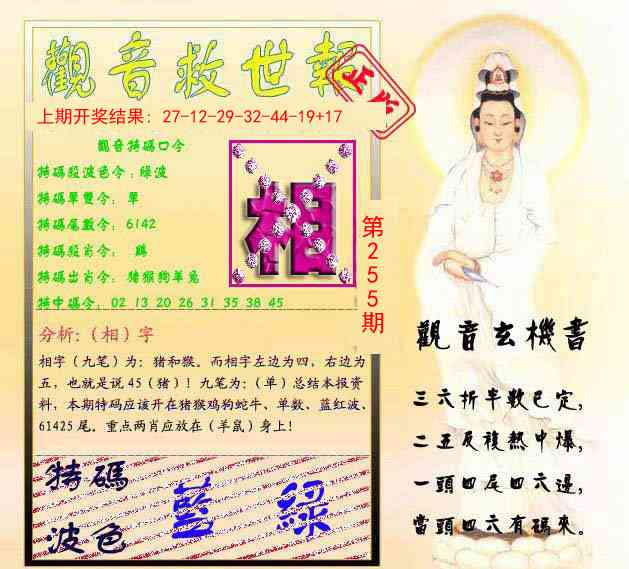 觀音救世報
正义
上期开奖结果：27-12-29-32-44-19+17
觀音特碼口令
特碼殺波色令：綠波
特碼單雙令：單
特碼尾數令：6142
特碼殺肖令：鷄
特碼出肖令：豬猴狗羊兔
特中碼令：02 13 20 26 31 35 38 45
相
第255期
分析:（相）字
相字（九笔）为：猪和猴。而相字左边为四，右边为
五，也就是说45（猪）！九笔为：（单）总结本报资
料，本期特码应该开在猪猴鸡狗蛇牛、单数、蓝红波、
61425尾。重点两肖应放在（羊鼠）身上！
特碼
波色
藍 綠
觀音玄機書
三六折半數已定，
二五反複熱中爆，
一頭四尾四六邊，
當頭四六有碼來。